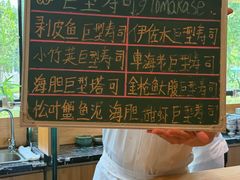 巨型寿司 omakase
剥皮鱼 巨型寿司 伊佐木巨型寿司
小竹荚巨型寿司 車海老巨型寿司
海胆巨型塔司 金枪鱼腹巨型寿司
松叶蟹鱼泥 海胆 甜虾巨型寿司